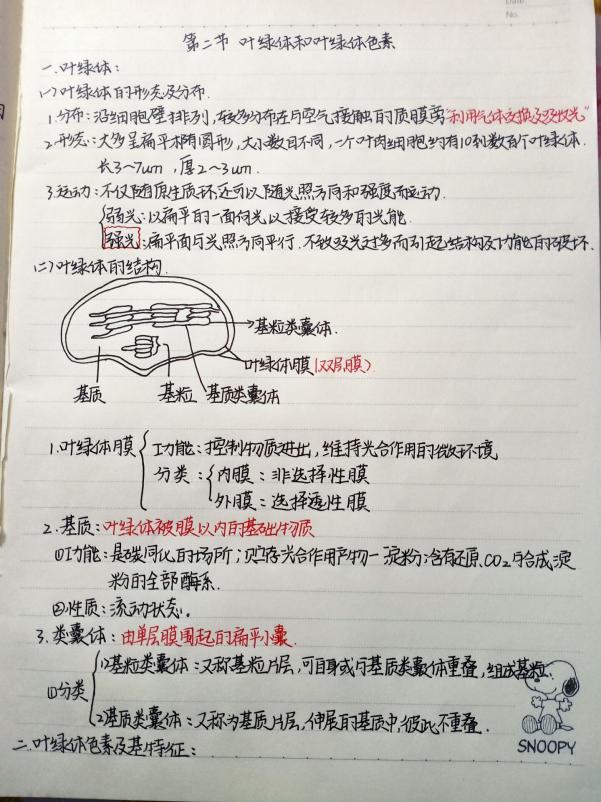 Date
No.
第二节 叶绿体和叶绿体色素
一.叶绿体:
(一)叶绿体的形态及分布.
1.分布:沿细胞壁排列,较多分布在与空气接触的质膜旁"利用气体交换及吸收光"
2.形态:大多呈扁平椭圆形,大小数目不同,一个叶肉细胞约有10到数百个叶绿体.
长3~7um,厚2~3um.
3.运动:不仅随原生质环还可以随光照方向和强度而运动.
弱光:以扁平的一面向光以接受较多的光能.
强光:扁平面与光照方向平行.不致吸光过多而引起结构及功能的破坏.
(二)叶绿体的结构.
基粒类囊体.
叶绿体膜(双层膜)
基质 基粒 基质类囊体
1.叶绿体膜
功能:控制物质进出,维持光合作用的微环境
分类:内膜:非选择性膜
外膜:选择透性膜
2.基质:叶绿体被膜以内的基础物质
①功能:是碳同化的场所;贮存光合作用产物—淀粉:含有还原CO₂与合成淀
粉的全部酶系.
②性质:流动状态。
3.类囊体:由单层膜围起的扁平小囊.
①分类
1)基粒类囊体:又称基粒片层,可自身或与基质类囊体重叠,组成基粒.
2)基质类囊体:又称为基质片层,伸展的基质中,彼此不重叠.
二.叶绿体色素及基特征:
SNOOPY